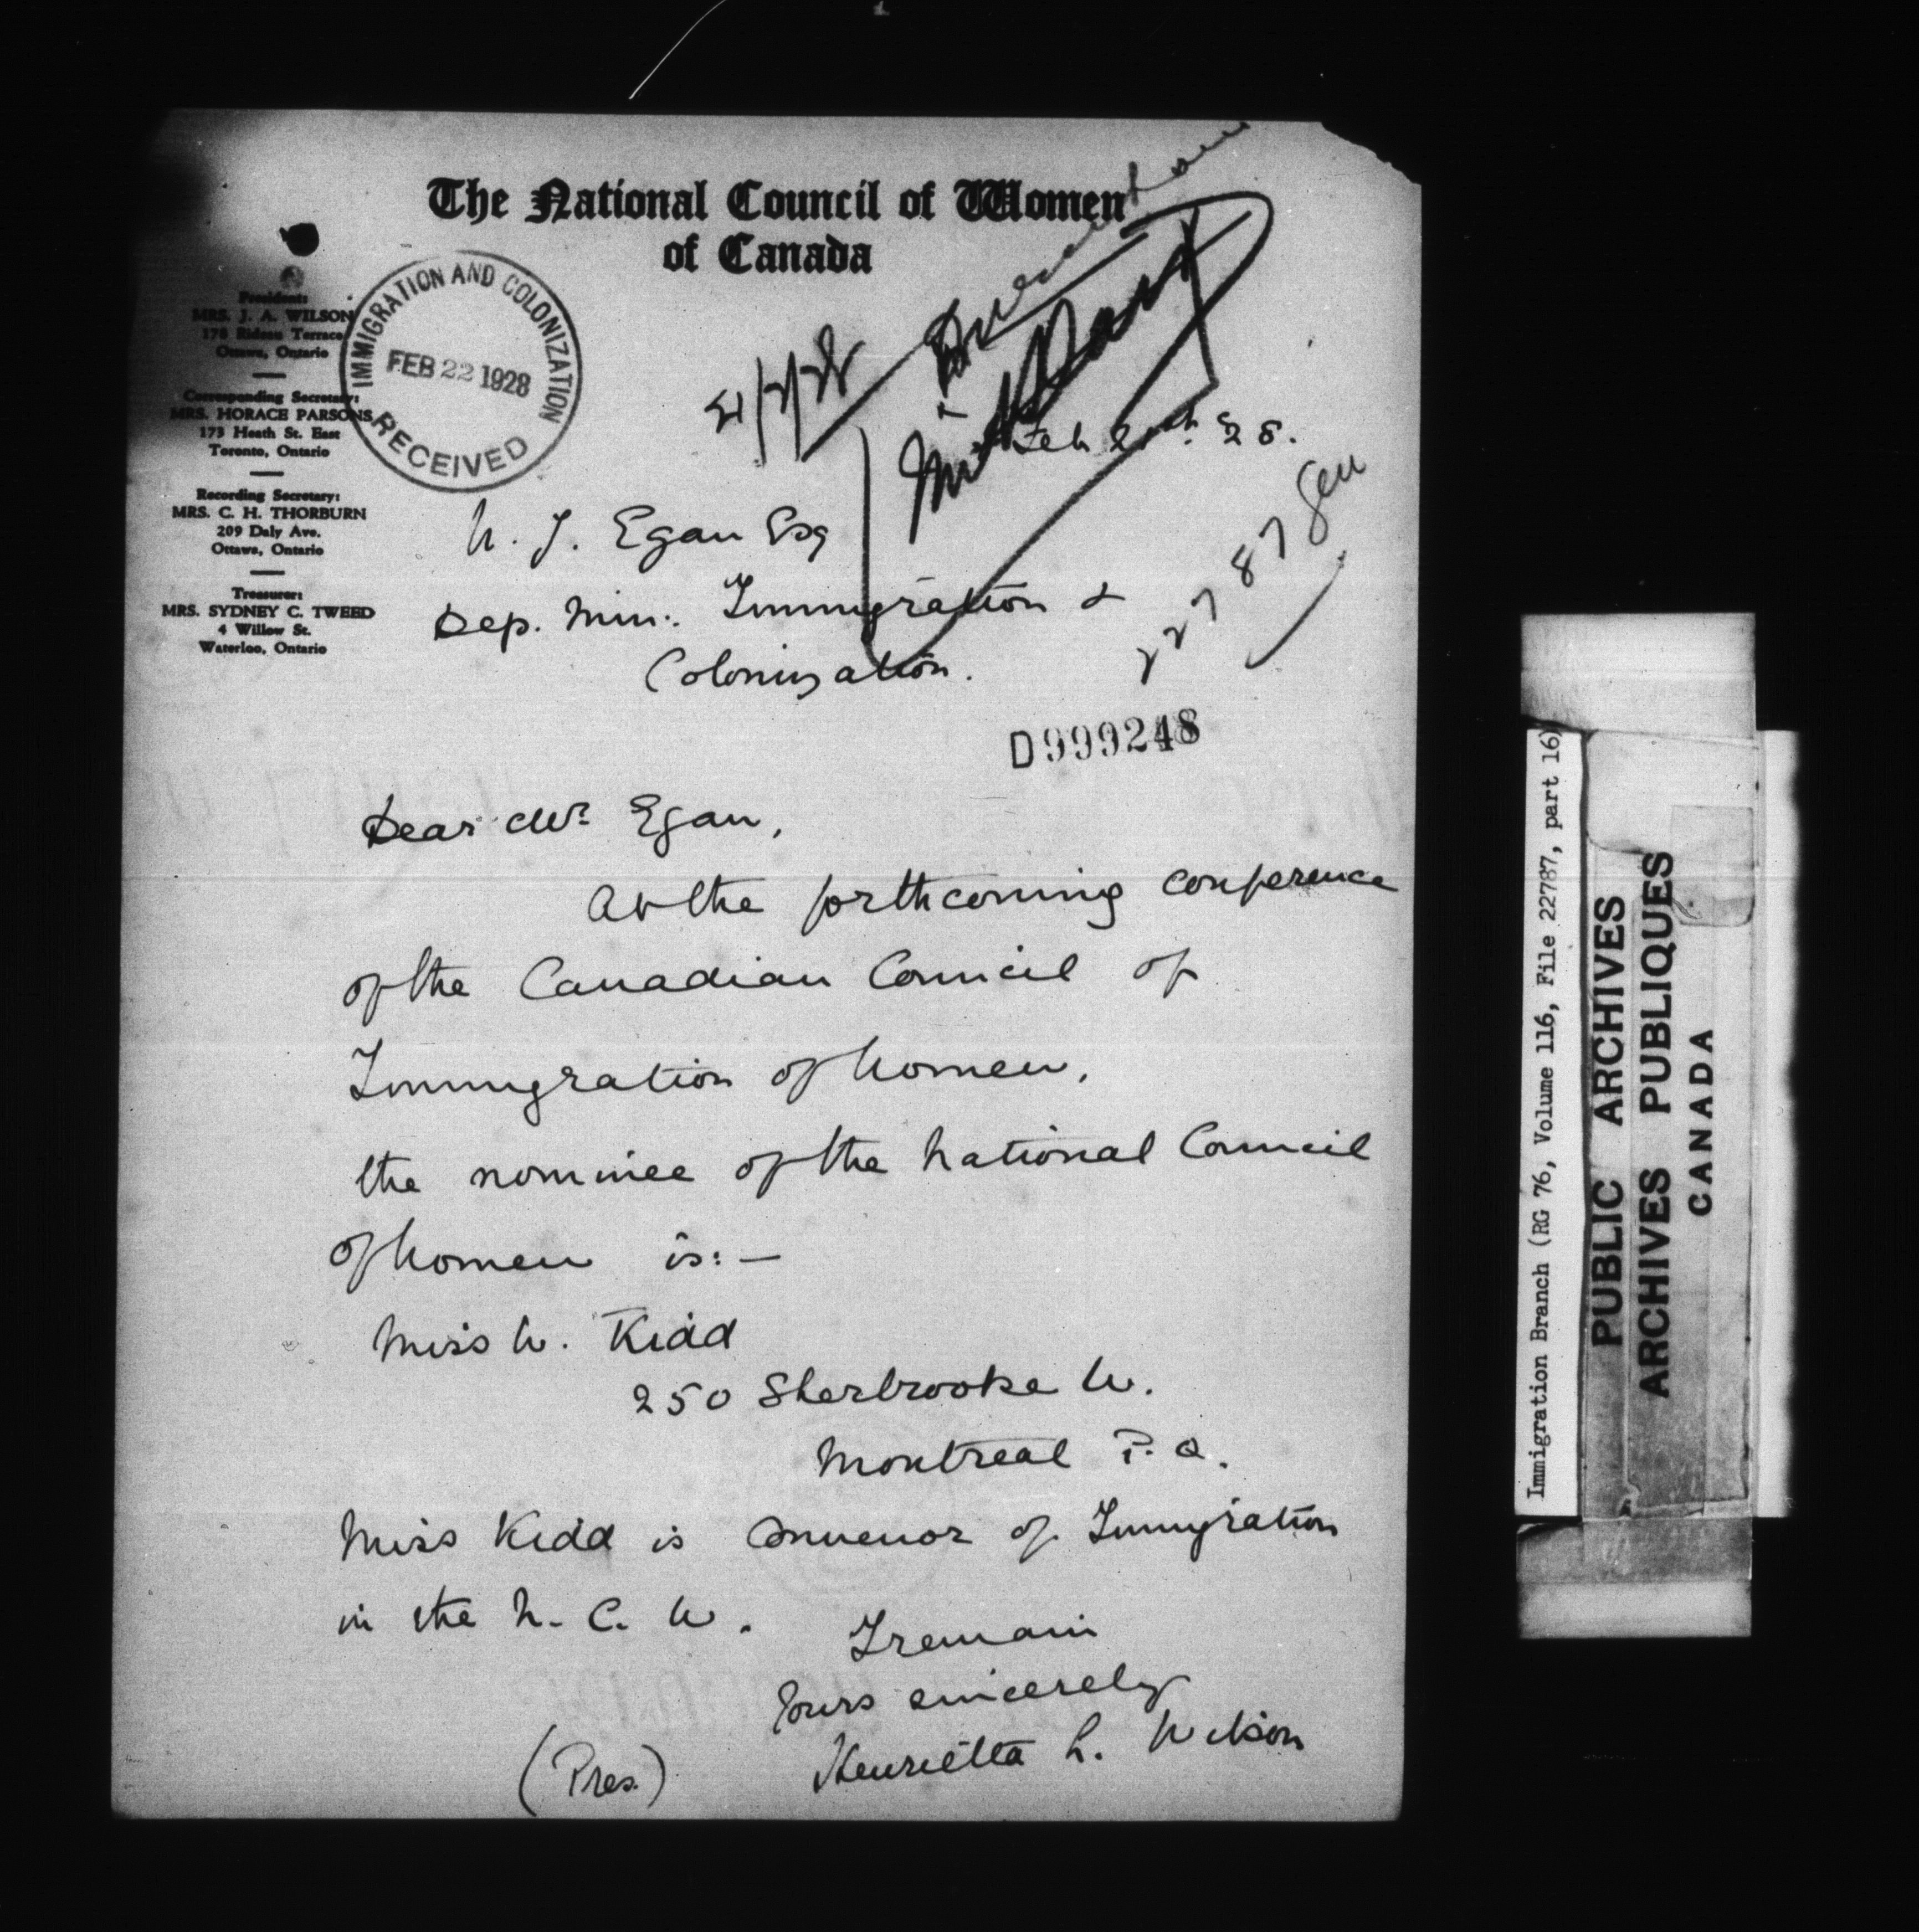 The National Council of Women
of Canada
President:
MRS. J. A. WILSON
178 Rideau Terrace
Ottawa, Ontario
Corresponding Secretary:
MRS. HORACE PARSONS
173 Heath St. East
Toronto, Ontario
Recording Secretary:
MRS. C. H. THORBURN
209 Daly Ave.
Ottawa, Ontario
Treasurer:
MRS. SYDNEY C. TWEED
4 Willow St.
Waterloo, Ontario
IMMIGRATION AND COLONIZATION
FEB 22 1928
RECEIVED
Feb 28.
22787 Gen
W. J. Egan Esq
Dep. Min. Immigration &
Colonization.
D999248
Dear Mr. Egan,
At the forthcoming conference
of the Canadian Council of
Immigration of Women,
the nominee of the National Council
of Women is:—
Miss W. Kidd
250 Sherbrooke W.
Montreal P.Q.
Miss Kidd is Convenor of Immigration
in the N.C.W.
I remain
Yours sincerely
Henrietta L. Wilson
(Pres.)
Immigration Branch (RG 76, Volume 116, File 22787, part 16)
PUBLIC ARCHIVES
ARCHIVES PUBLIQUES
CANADA